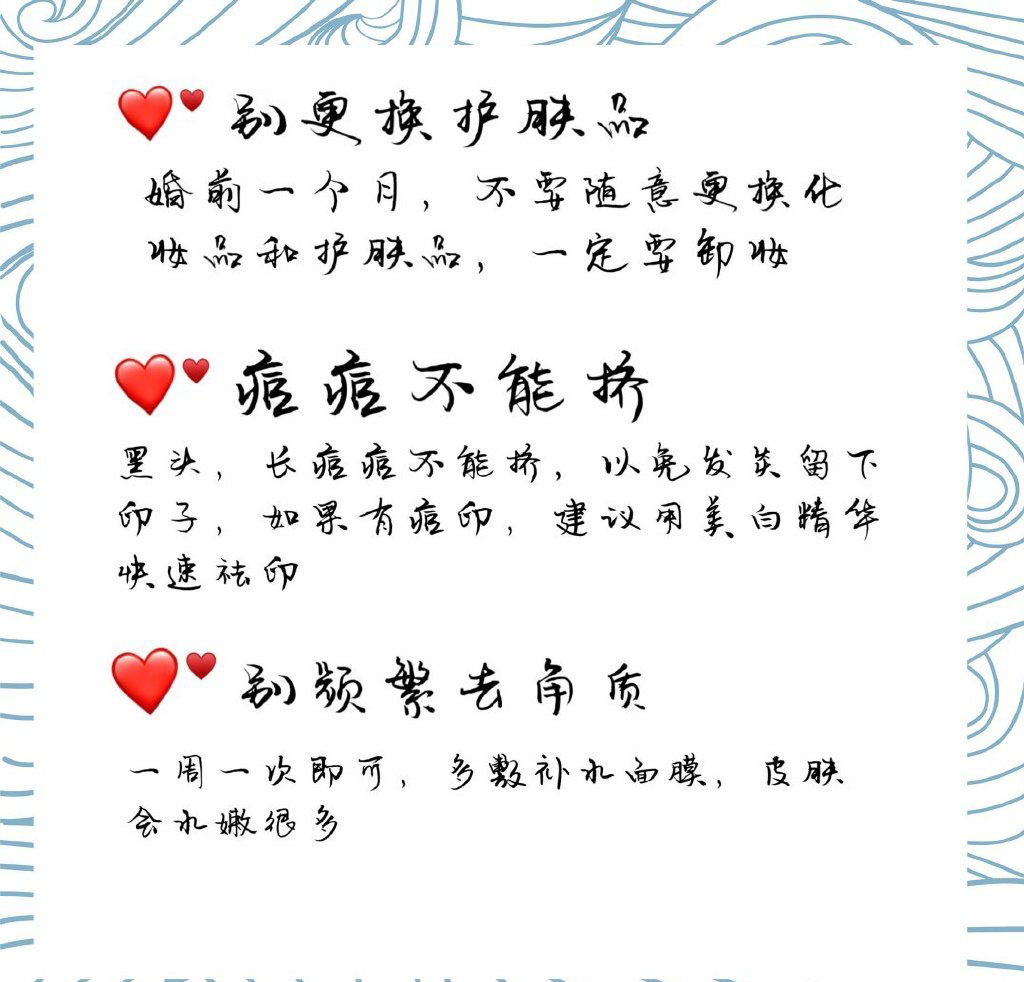 别更换护肤品
婚前一个月，不要随意更换化
妆品和护肤品，一定要卸妆
痘痘不能挤
黑头，长痘痘不能挤，以免发炎留下
印子，如果有痘印，建议用美白精华
快速祛印
别频繁去角质
一周一次即可，多敷补水面膜，皮肤
会水嫩很多